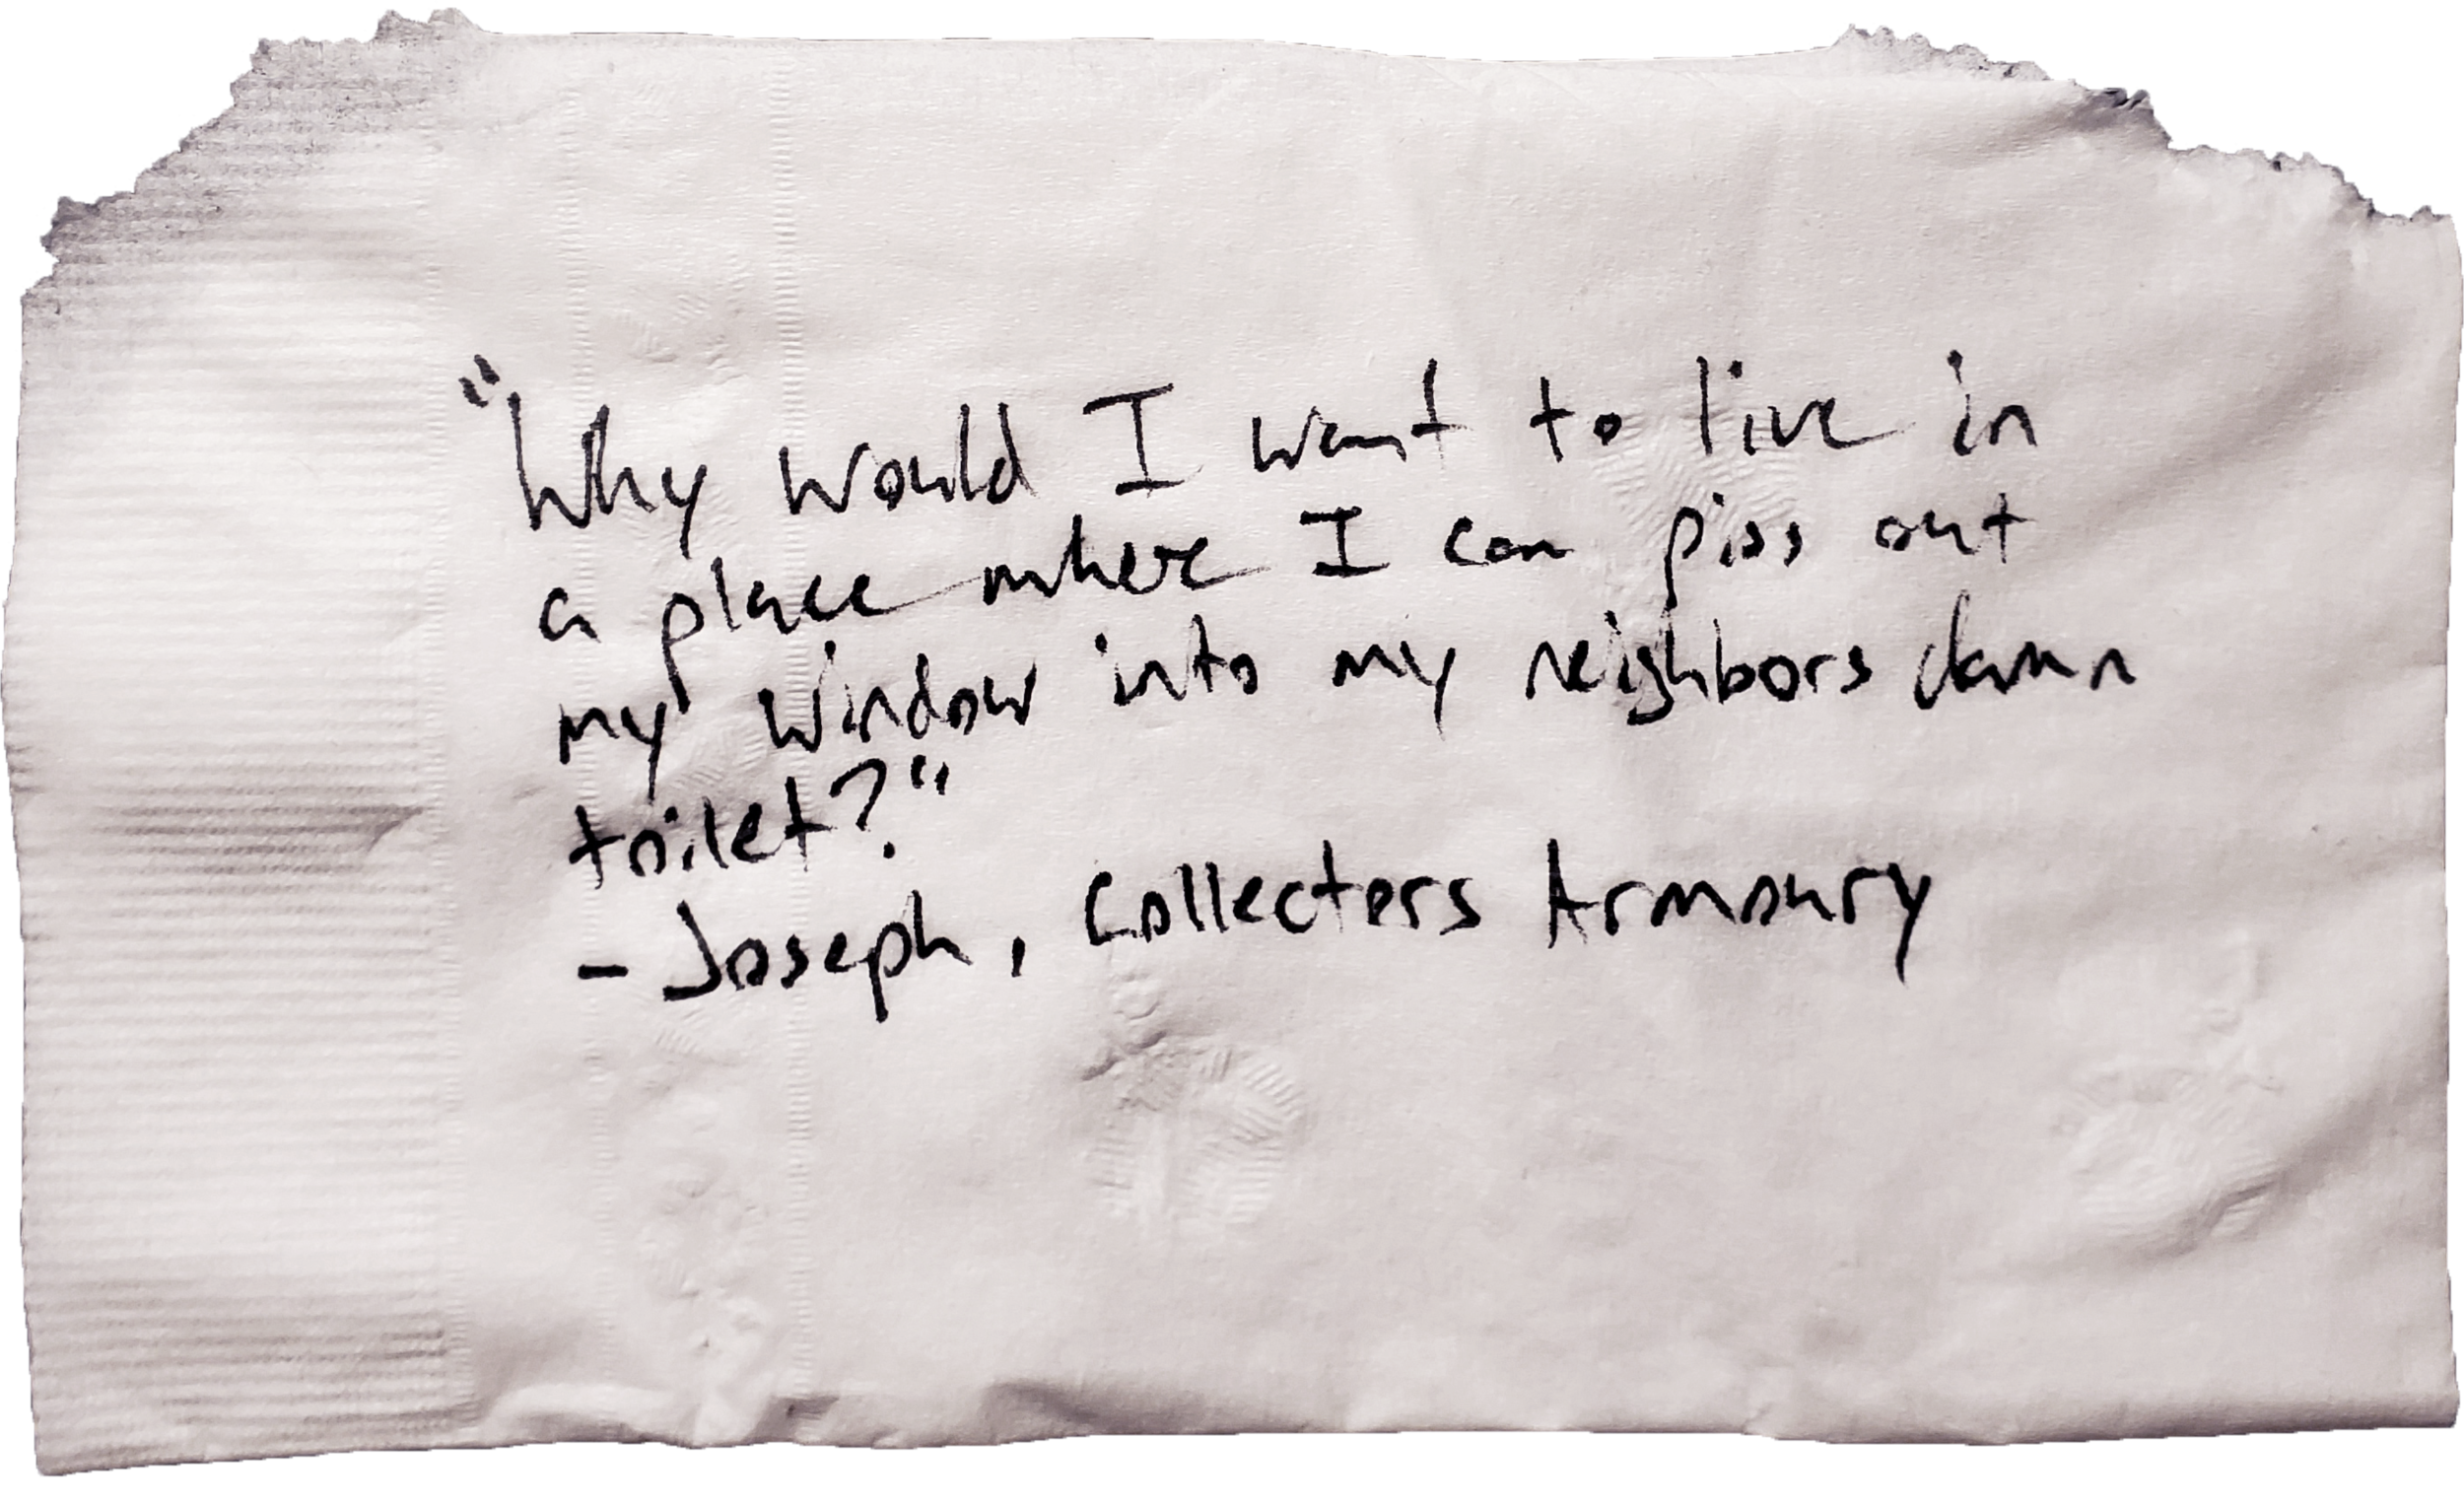 "Why would I want to live in
a place where I can piss out
my window into my neighbors damn
toilet?"
- Joseph, Collectors Armoury